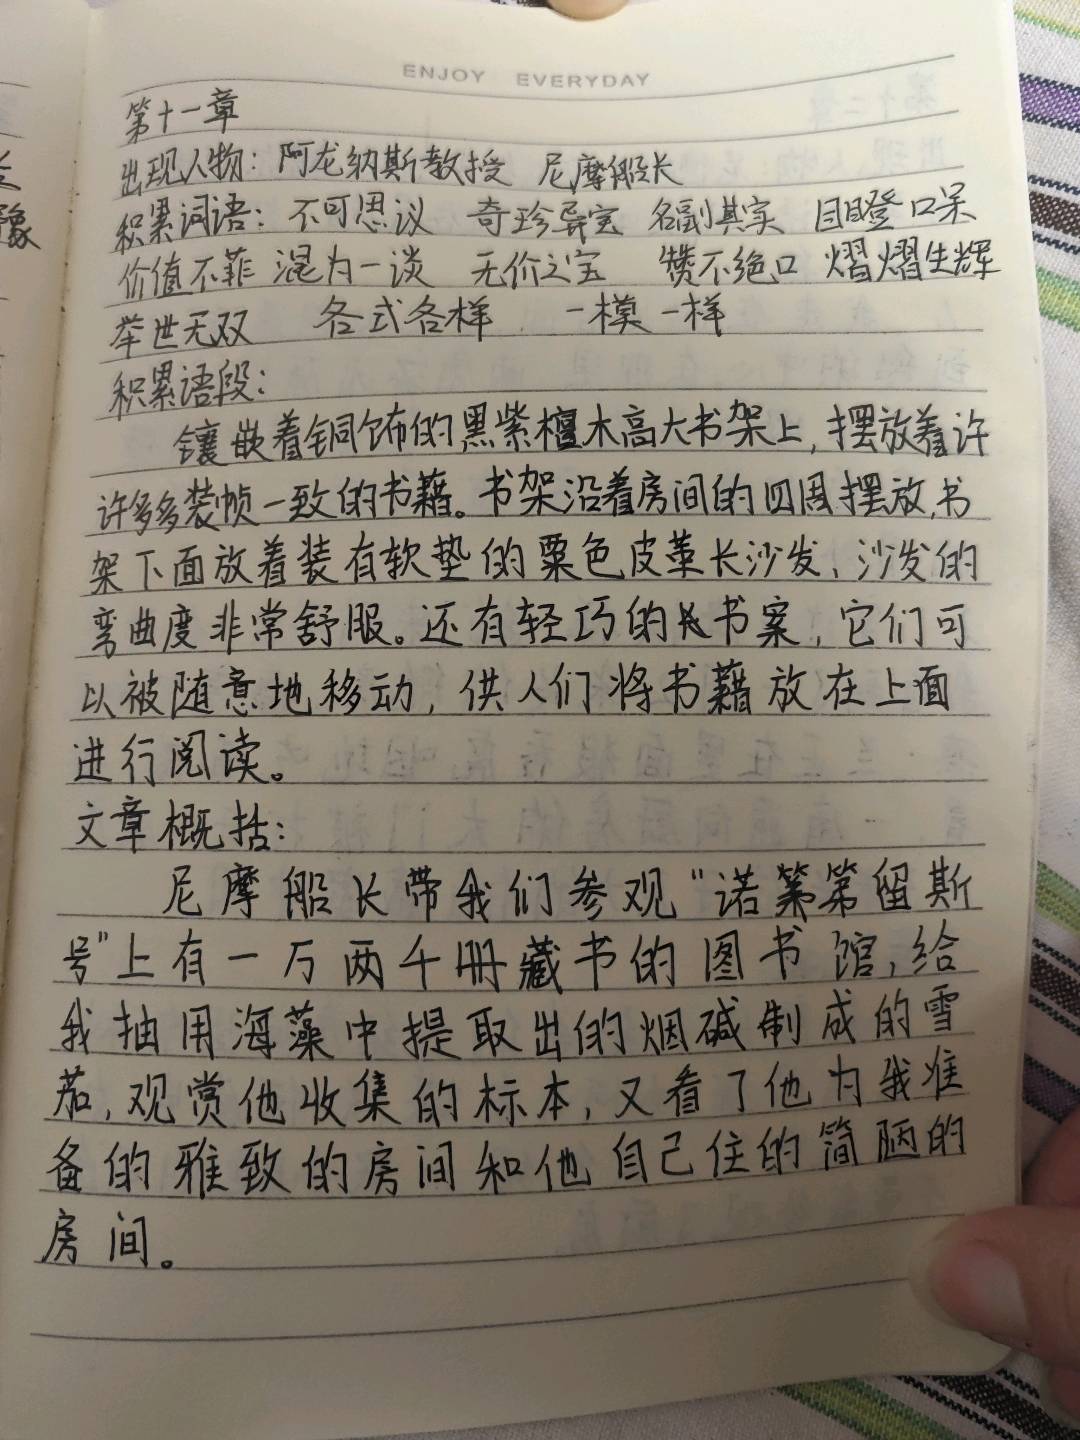 ENJOY EVERYDAY
第十一章
出现人物：阿龙纳斯教授 尼摩船长
积累词语：不可思议 奇珍异宝 名副其实 目瞪口呆
价值不菲 混为一谈 无价之宝 赞不绝口 熠熠生辉
举世无双 各式各样 一模一样
积累语段：
镶嵌着铜饰的黑紫檀木高大书架上，摆放着许
许多多装帧一致的书籍。书架沿着房间的四周摆放，书
架下面放着装有软垫的栗色皮革长沙发，沙发的
弯曲度非常舒服。还有轻巧的书案，它们可
以被随意地移动，供人们将书籍放在上面
进行阅读。
文章概括：
尼摩船长带我们参观“诺第留斯
号”上有一万两千册藏书的图书馆，给
我抽用海藻中提取出的烟碱制成的雪
茄，观赏他收集的标本，又看了他为我准
备的雅致的房间和他自己住的简陋的
房间。
豫